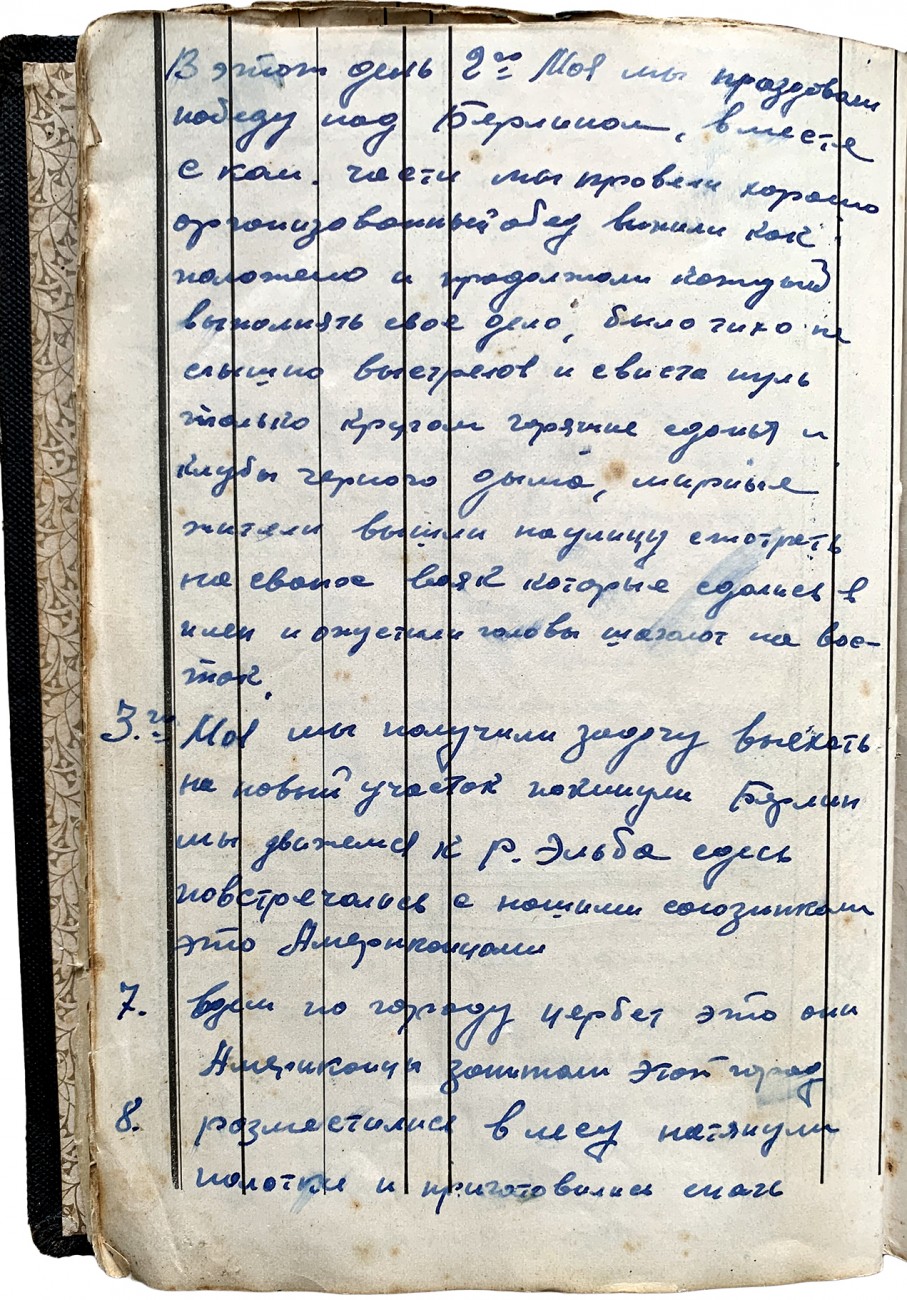 В этот день 2го Мая мы праздовали
победу над Берлином, вместе
с ком. части мы провели хорошо
организованный обед выпили как
положено и продолжали каждый
выполнять свое дело, было тихо не
слышно выстрелов и свиста пуль
только кругом горящие здания и
клубы черного дыма, мирные
жители вышли на улицу смотреть
на своих вояк которые сдались в
плен и опустили головы шагают на вос-
ток.
3.го Мая мы получили задачу выехать
на новый участок покинули Берлин
мы движемся к р. Эльба здесь
повстречались с нашими союзниками
это Американцами
7. едем по городу цербст это они
Американцы занимали этот город
8. разместились в лесу натянули
палатки и приготовились спать